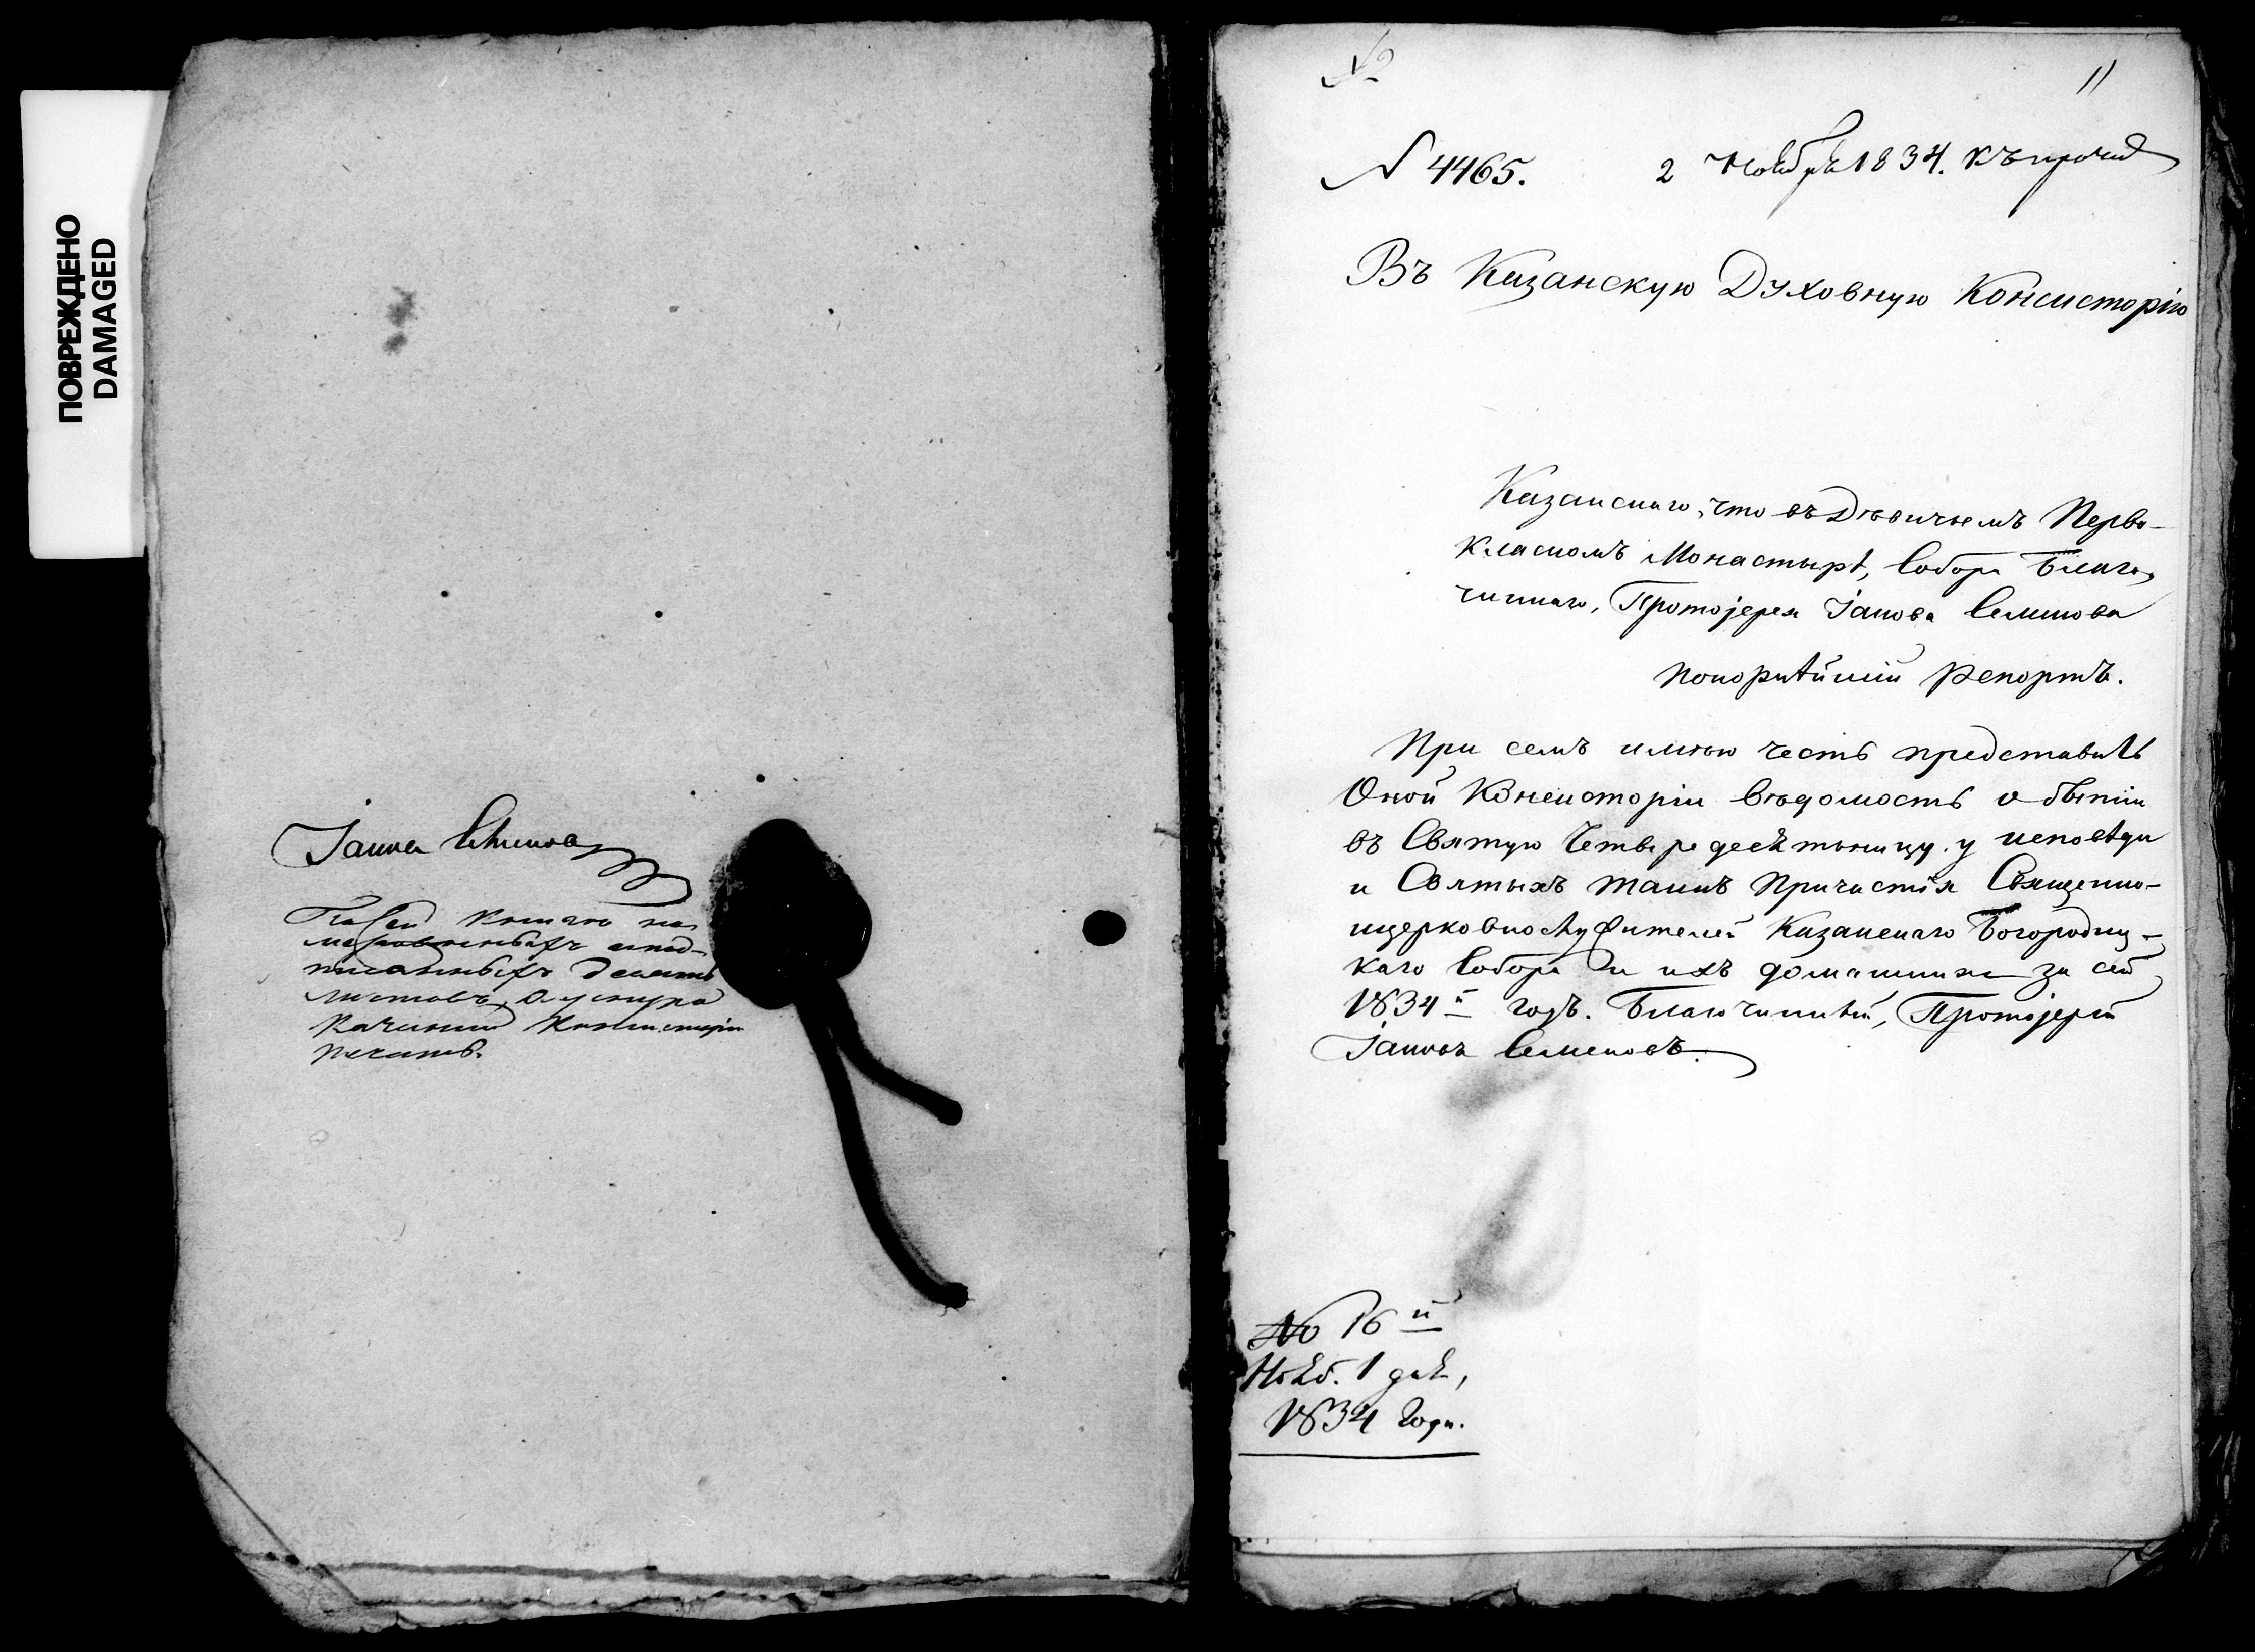 ПОВРЕЖДЕНО
DAMAGED
Въ сей книгѣ ну-
мерованныхъ и под-
писанныхъ десять
листовъ, у шнура
Казанской Консисторіи
печать.
№
11
N 4465.
2 Ноября 1834. Къ прочим
Въ Казанскую Духовную Консисторію
Казанскаго, что въ Дѣвичьемъ Перво-
класномъ Монастырѣ, Собора Благо-
чиннаго, Протоjерея Iакова Семенова
покорнѣйшій Репортъ.
При семъ имѣю честь представить
Оной Консисторіи Вѣдомость о бытіи
въ Святую Четыредесятьницу у исповѣди
и Святыхъ таинъ Причастія Священно-
ицерковнослужителей Казанскаго Богородиц-
каго Собора и ихъ домашнихъ за сей
1834й годъ. Благочинный, Протоjерей
Iаковъ Семеновъ.
No 16й
Нояб. 1 дня,
1834 Года.